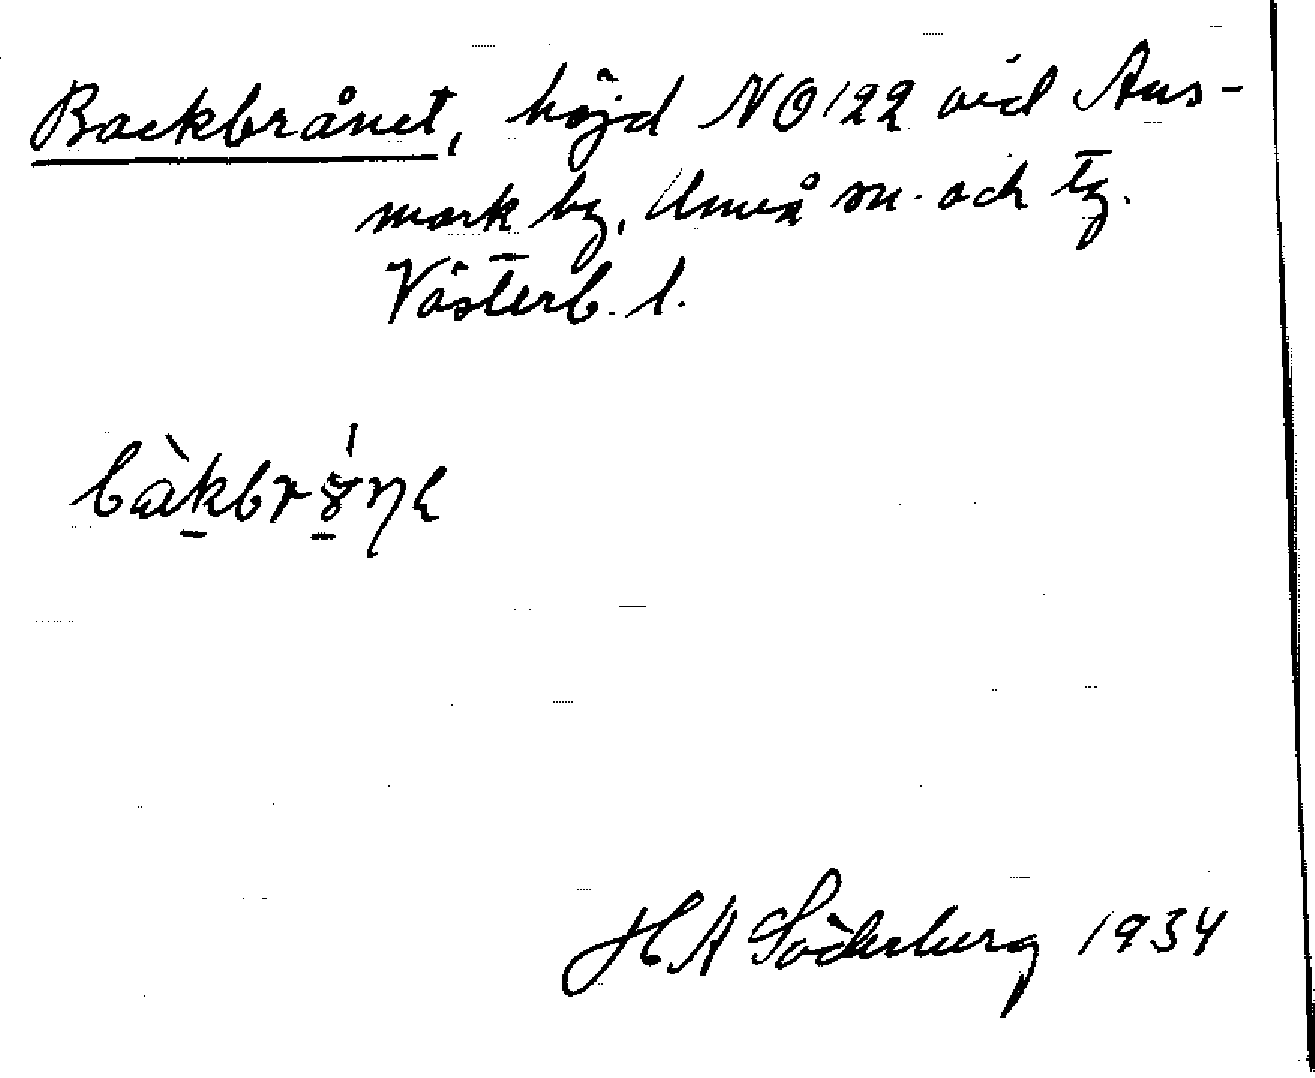 Backbrånet, höjd NO122 vid Ans-
mark by, Umeå sn. och tg.
Västerb. l.
H A Söderberg 1934